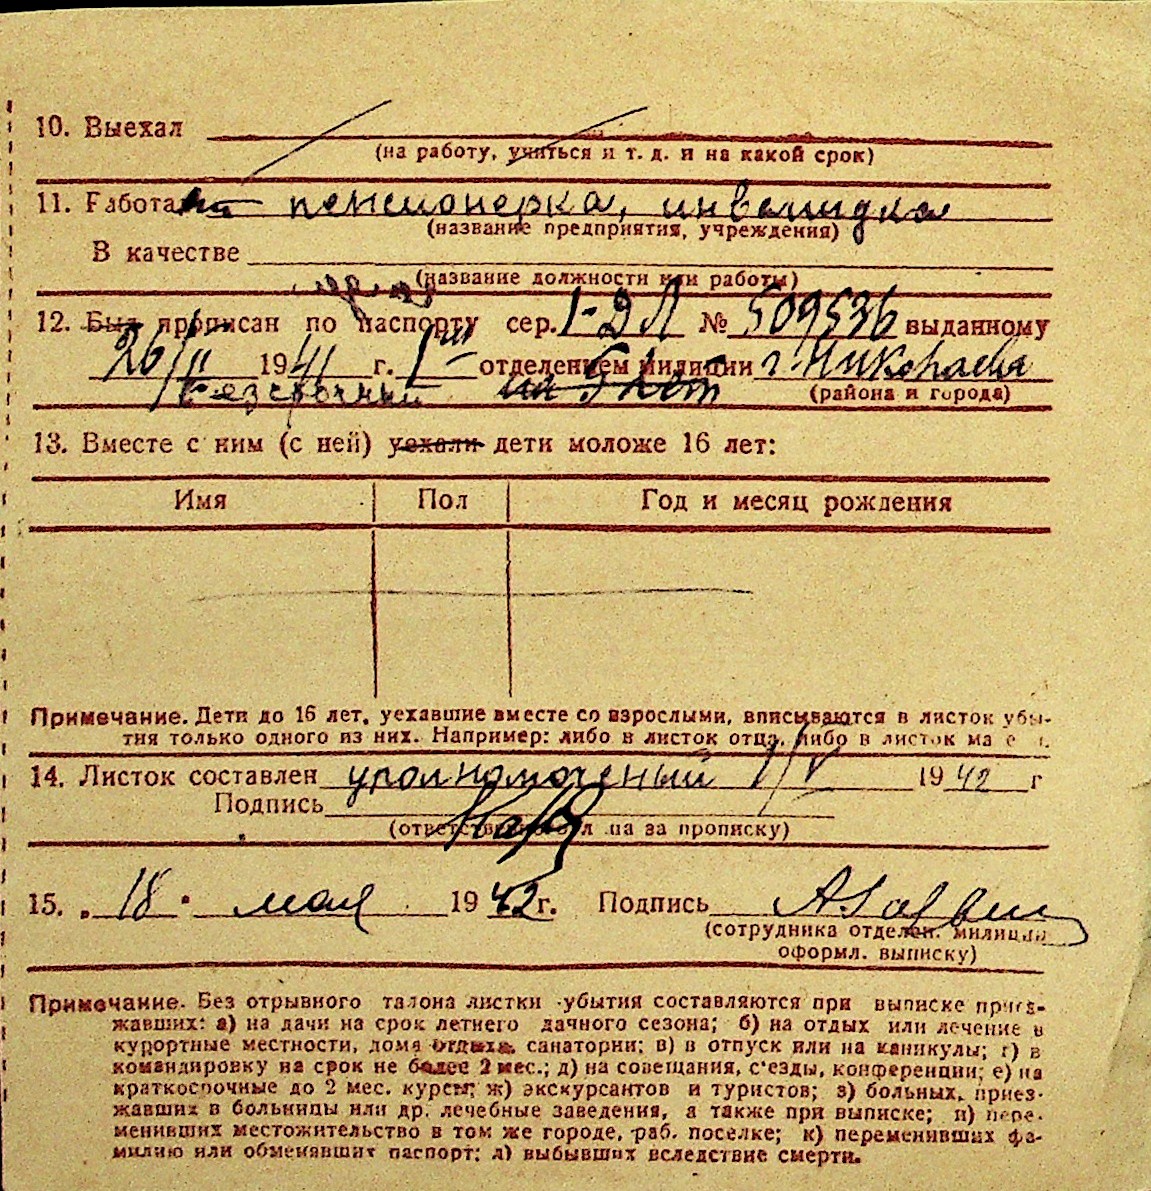 10. Выехал
(на работу, учиться и т. д. и на какой срок)
11. Работа пенсионерка, инвалидка
(название предприятия, учреждения)
В качестве
(название должности или работы)
12. Был прописан по паспорту сер. 1-ЭЛ № 509536 выданному
26/II 1941 г. 1ым отделением милиции г. Николаева
безсрочный на 5 лет
(района и города)
13. Вместе с ним (с ней) уехали дети моложе 16 лет:
Имя Пол Год и месяц рождения
Примечание. Дети до 16 лет, уехавшие вместе со взрослыми, вписываются в листок убы-
тия только одного из них. Например: либо в листок отца, либо в листок ма
14. Листок составлен уполномоченый 1/V 1942 г
Подпись
(ответственного за прописку)
15. „18" мая 1942 г. Подпись
(сотрудника отделен. милиции
оформл. выписку)
Примечание. Без отрывного талона листки убытия составляются при выписке приез-
жавших: а) на дачи на срок летнего дачного сезона; б) на отдых или лечение в
курортные местности, дома отдыха, санатории; в) в отпуск или на каникулы; г) в
командировку на срок не более 2 мес.; д) на совещания, с'езды, конференции; е) на
краткосрочные до 2 мес. курсы; ж) экскурсантов и туристов; з) больных, приез-
жавших в больницы или др. лечебные заведения, а также при выписке; и) пере-
менивших местожительство в том же городе, раб. поселке; к) переменивших фа-
милию или обменявших паспорт; л) выбывших вследствие смерти.